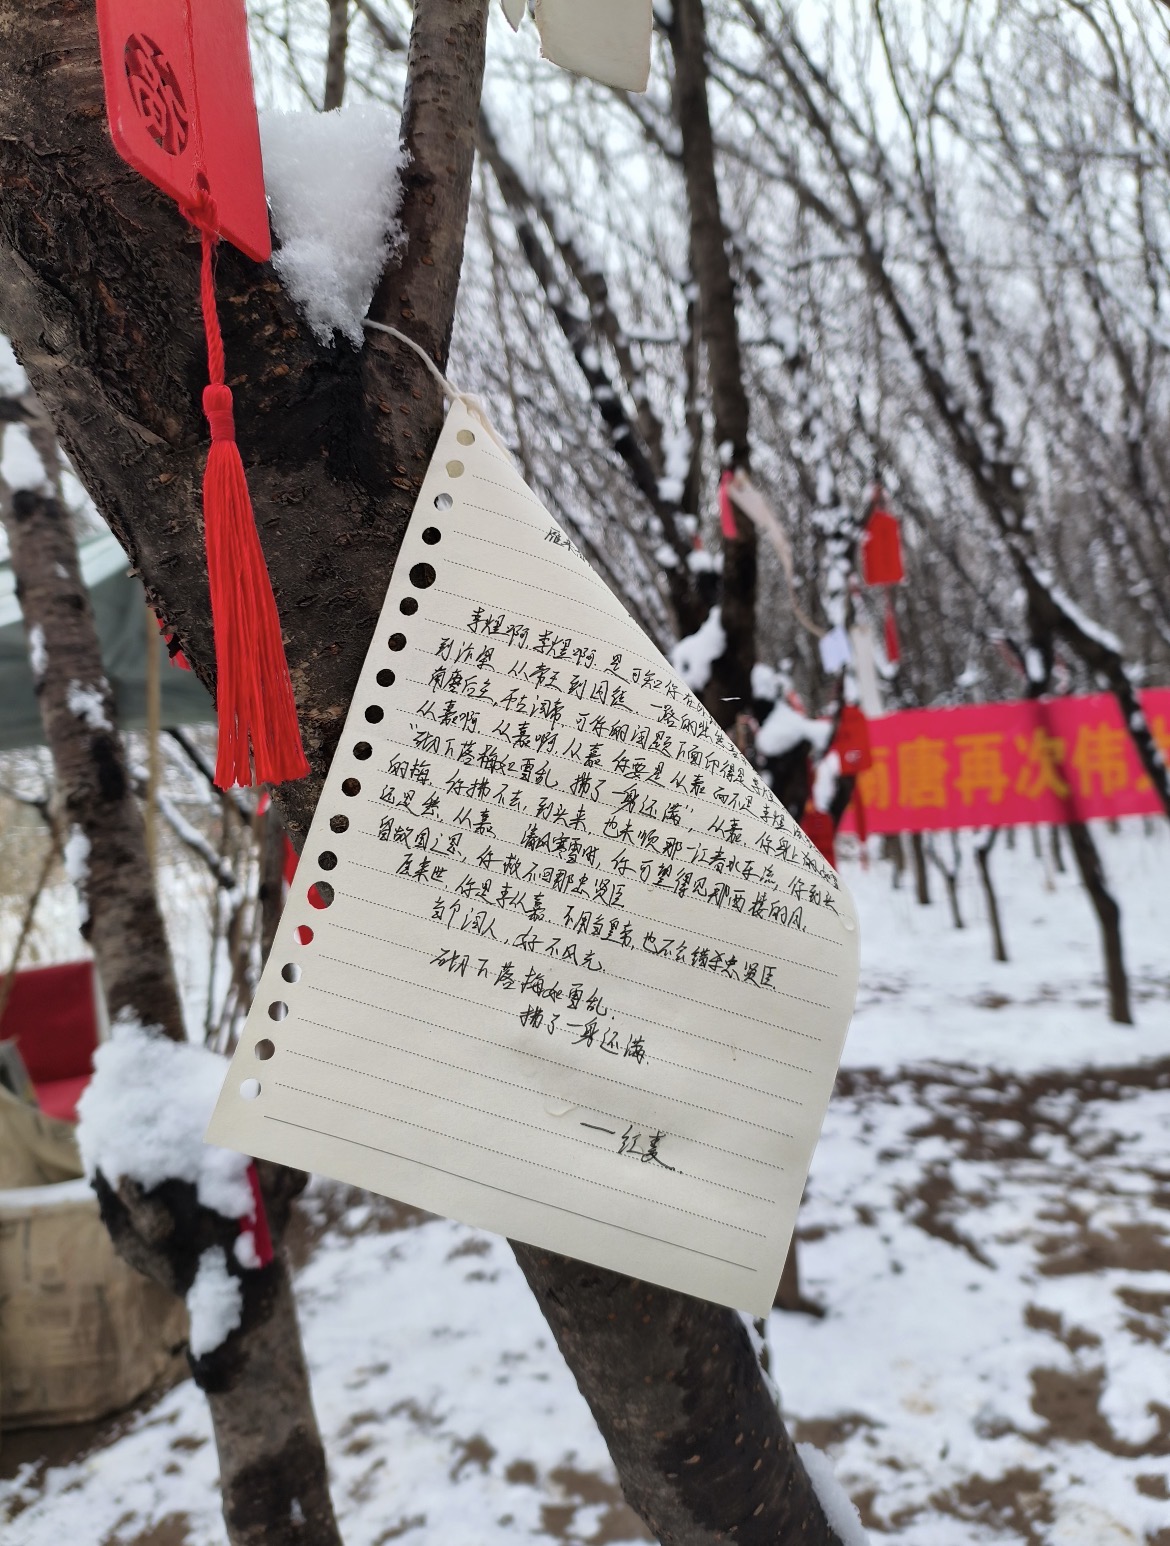 雁来
李煜啊,李煜啊,是可知你在
到汴梁,从帝王到囚徒,一路的
南唐后主,千古词帝,可你的词题下面印得是李煜
从嘉啊,从嘉啊,从嘉,你要是从嘉而不是李煜
"砌下落梅如雪乱,拂了一身还满",从嘉,你身上
的梅,你拂不去,到头来,也未顺那一江春水东流,你到头
还是然,从嘉 清风寒雪时,你可望得见那西楼的月,
故国之思,你救不回那忠贤臣
度来世,你是李从嘉,不用当皇帝,也不会错杀忠贤臣
当个词人,好不风光,
砌下落梅如雪乱,
拂了一身还满,
南唐再次伟大